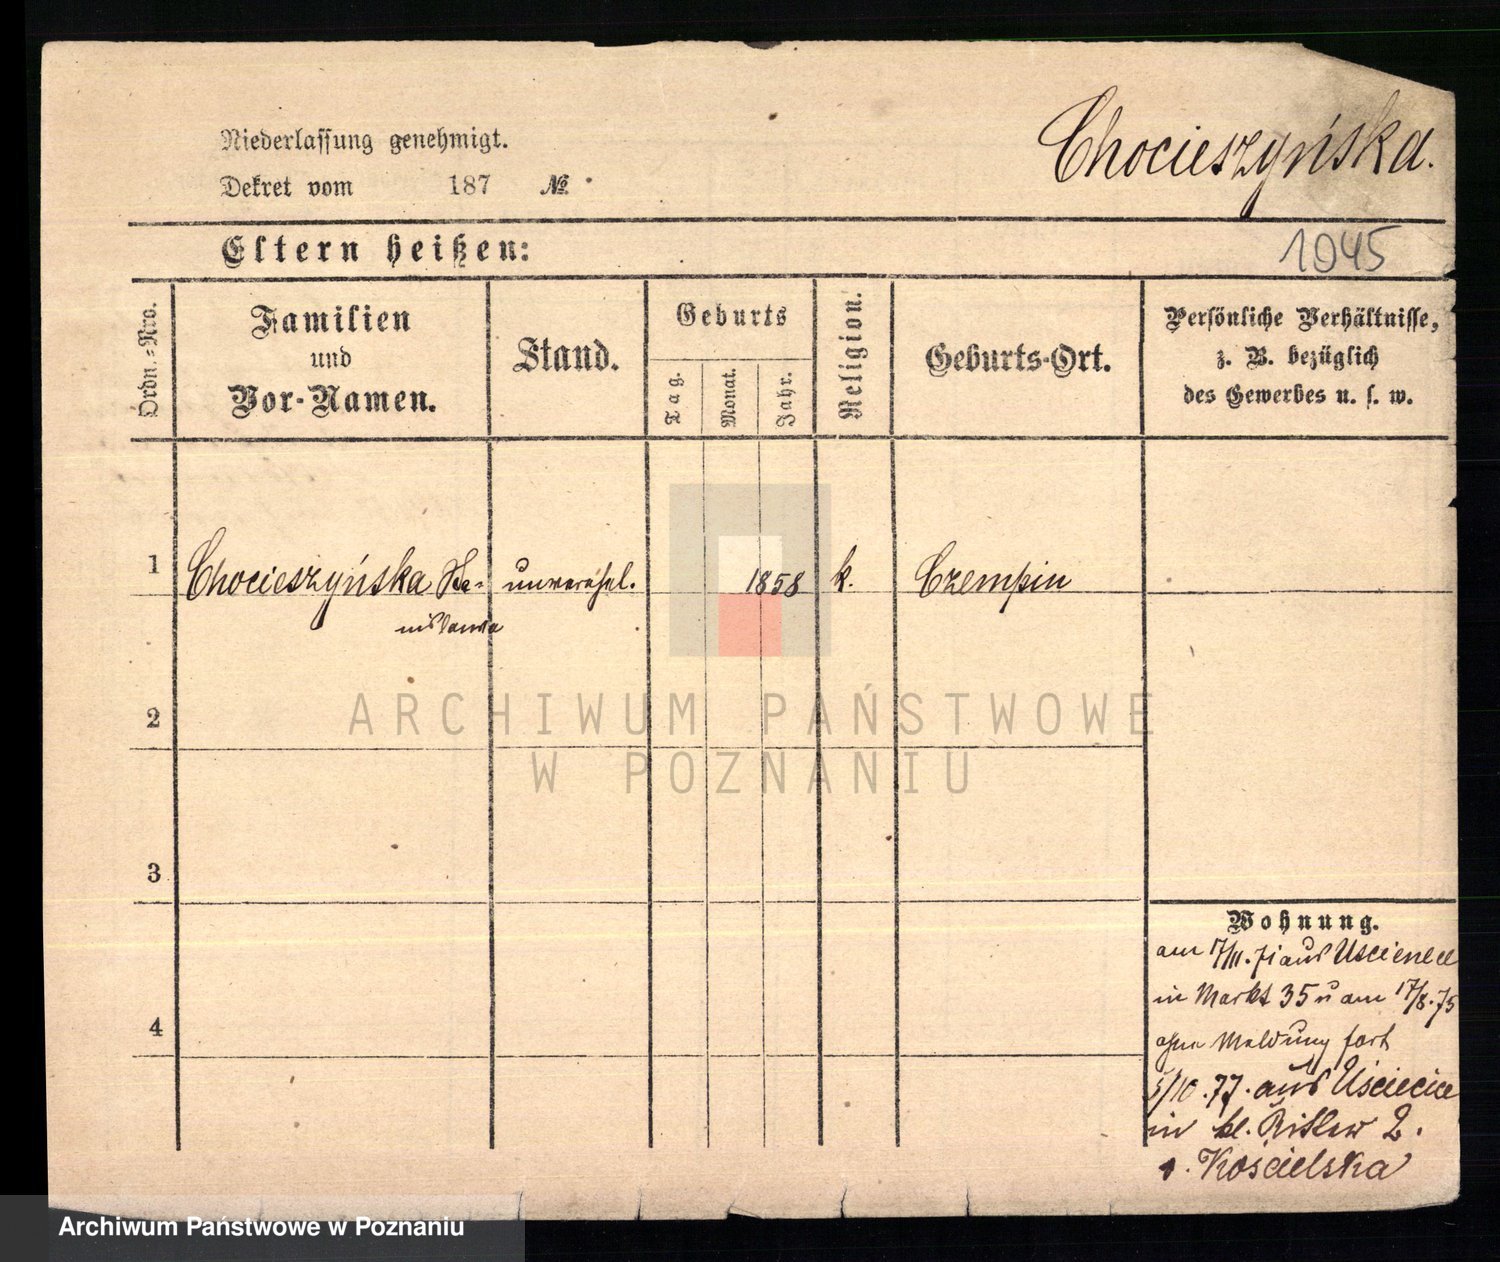 Niederlassung genehmigt.
Dekret vom 187 №
Chocieszyńska.
Eltern heißen:
1045
Ordn.-Nro.
Familien
und
Vor-Namen.
Stand.
Geburts
Tag.
Monat.
Jahr.
Religion.
Geburts-Ort.
Persönliche Verhältnisse,
z. B. bezüglich
des Gewerbes u. s. w.
1 Chocieszyńska Sta- unverehel. 1858 k. Czempin
nislawa
2
ARCHIWUM PAŃSTWOWE
W POZNANIU
3
Wohnung.
am 17/11. 71 aus
in Markt 35 u am 17/8.75
4
ohne Meldung fort
5/10.77. aus Usciecice
in kl. Ritter 2.
Kościelska
Archiwum Państwowe w Poznaniu